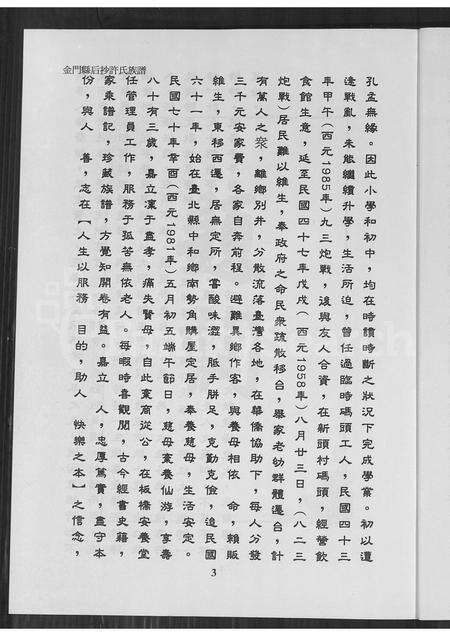 金門縣后抄許氏族譜
孔孟無緣。因此小學和初中，均在時讀時斷之狀況下完成學業。初以遭
逢戰亂，未能繼續升學，生活所迫，曾任過臨時碼頭工人，民國四十三
年甲午（西元1985年）九三炮戰，後與友人合資，在新頭村碼頭，經營飲
食館生意，延至民國四十七年戊戌（西元1958年）八月廿三日，（八二三
炮戰）居民難以維生，奉政府之命民眾疏散移台，舉家老幼群體遷台，計
有萬人之眾，離鄉別井，分散流落臺灣各地，在華僑協助下，每人分發
三千元安家費，各家自奔前程。避難異鄉作客，與養母相依 命，賴販
維生，東移西遷，居無定所，嘗酸味澀，胝手胼足，克勤克儉，迨民國
六十一年，始在臺北縣中和鄉南勢角購屋定居，奉養慈母，生活安定。
民國七十年辛酉（西元1981年）五月初五端午節日，慈母棄養仙游，享壽
八十有三歲，嘉立稟于盡孝，痛失賢母，自此棄商從公，在板橋安養堂
任管理員工作，服務于孤苦無依老人，每暇時喜觀閱，古今經書史籍，
家乘譜記，珍藏族譜，方覺知開卷有益。嘉立 人，忠厚篤實，盡守本
份，與人 善，志在【人生以服務 目的，助人 快樂之本】之信念，
3